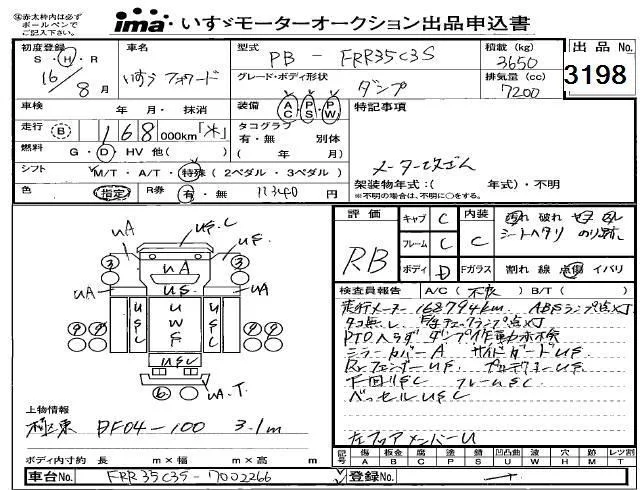 ④赤太枠内は必ず
ボールペンで
ご記入下さい。
ima いすゞモーターオークション出品申込書
初度登録
S・H・R
16/8月
車名
いすゞ フォワード
型式
PB-FRR35C3S
グレード・ボディ形状
ダンプ
積載(kg)
3650
排気量(cc)
7200
出品No.
3198
車検 年 月・抹消
装備 AC PS PW
特記事項
走行 B 168 000km「米」
タコグラフ
有・無 別体
( 年 月)
燃料 G・D・HV 他( )
シフト M/T・A/T・特殊(2ペダル・3ペダル)
メーター改ざん
架装物年式:( 年式)・不明
※不明の場合は、不明に○をする。
色 指定 R券 有・無 11340 円
評価
RB
キャブ C
フレーム C
ボディ D
内装
C
シートヘタリ のり跡
Fガラス 割れ 線 点傷 イバリ
検査員報告 A/C(不良) B/T( )
走行メーター168794km ABSランプ点灯
タコ無し
PTOヘラダ ダンプ作動未検
ミラーカバーA サイドガードUF
RrフェンダーUF
下回りUSC フレームSC
ベッセルUSC
UA
USC
UF
UA
US
UA
UA
USC
UWF
USC
USC
UA.T.
3
3
6
上物情報
極東 DF04-100 3.1m
ボディ内寸約 長 m×幅 m×高 m
記号
傷 A
板金 B
腐 C
塗 P
錆 S
凹凸曲 U
波 W
穴 H
跡 M
汚 D
レツ割 T
車台No. FRR35C3S-7002266
登録No.